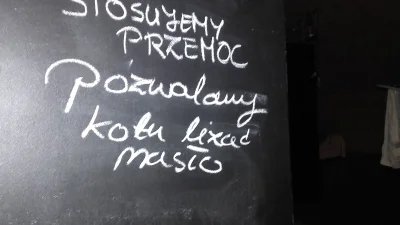 STOSUJEMY
PRZEMOC
Pozwalamy
kotu lizać
masło